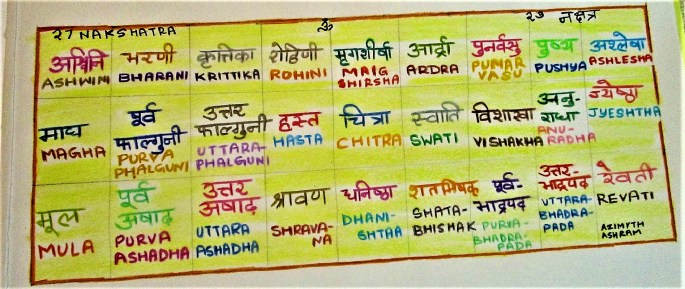 27 NAKSHATRA
ॐ
२७ नक्षत्र
अश्विनि
ASHWINI
भरणी
BHARANI
कृत्तिका
KRITTIKA
रोहिणी
ROHINI
मृगशीर्षा
MRIG
SHIRSHA
आर्द्रा
ARDRA
पुनर्वसु
PUNAR
VASU
पुष्य
PUSHYA
अश्लेषा
ASHLESHA
माघ
MAGHA
पूर्व
फाल्गुनी
PURVA
PHALGUNI
उत्तर
फाल्गुनी
UTTARA-
PHALGUNI
हस्त
HASTA
चित्रा
CHITRA
स्वाति
SWATI
विशाखा
VISHAKHA
अनु-
राधा
ANU-
RADHA
ज्येष्ठा
JYESHTHA
मूल
MULA
पूर्व
अषाढ़
PURVA
ASHADHA
उत्तर
अषाढ़
UTTARA
ASHADHA
श्रावण
SHRAVA-
NA
धनिष्ठा
DHANI-
SHTHA
शतभिषक
SHATA-
BHISHAK
पूर्व-
भाद्रपद
PURVA-
BHADRA-
PADA
उत्तर-
भाद्रपद
UTTARA-
BHADRA-
PADA
रेवती
REVATI
AZIMYTH
ASHRAM